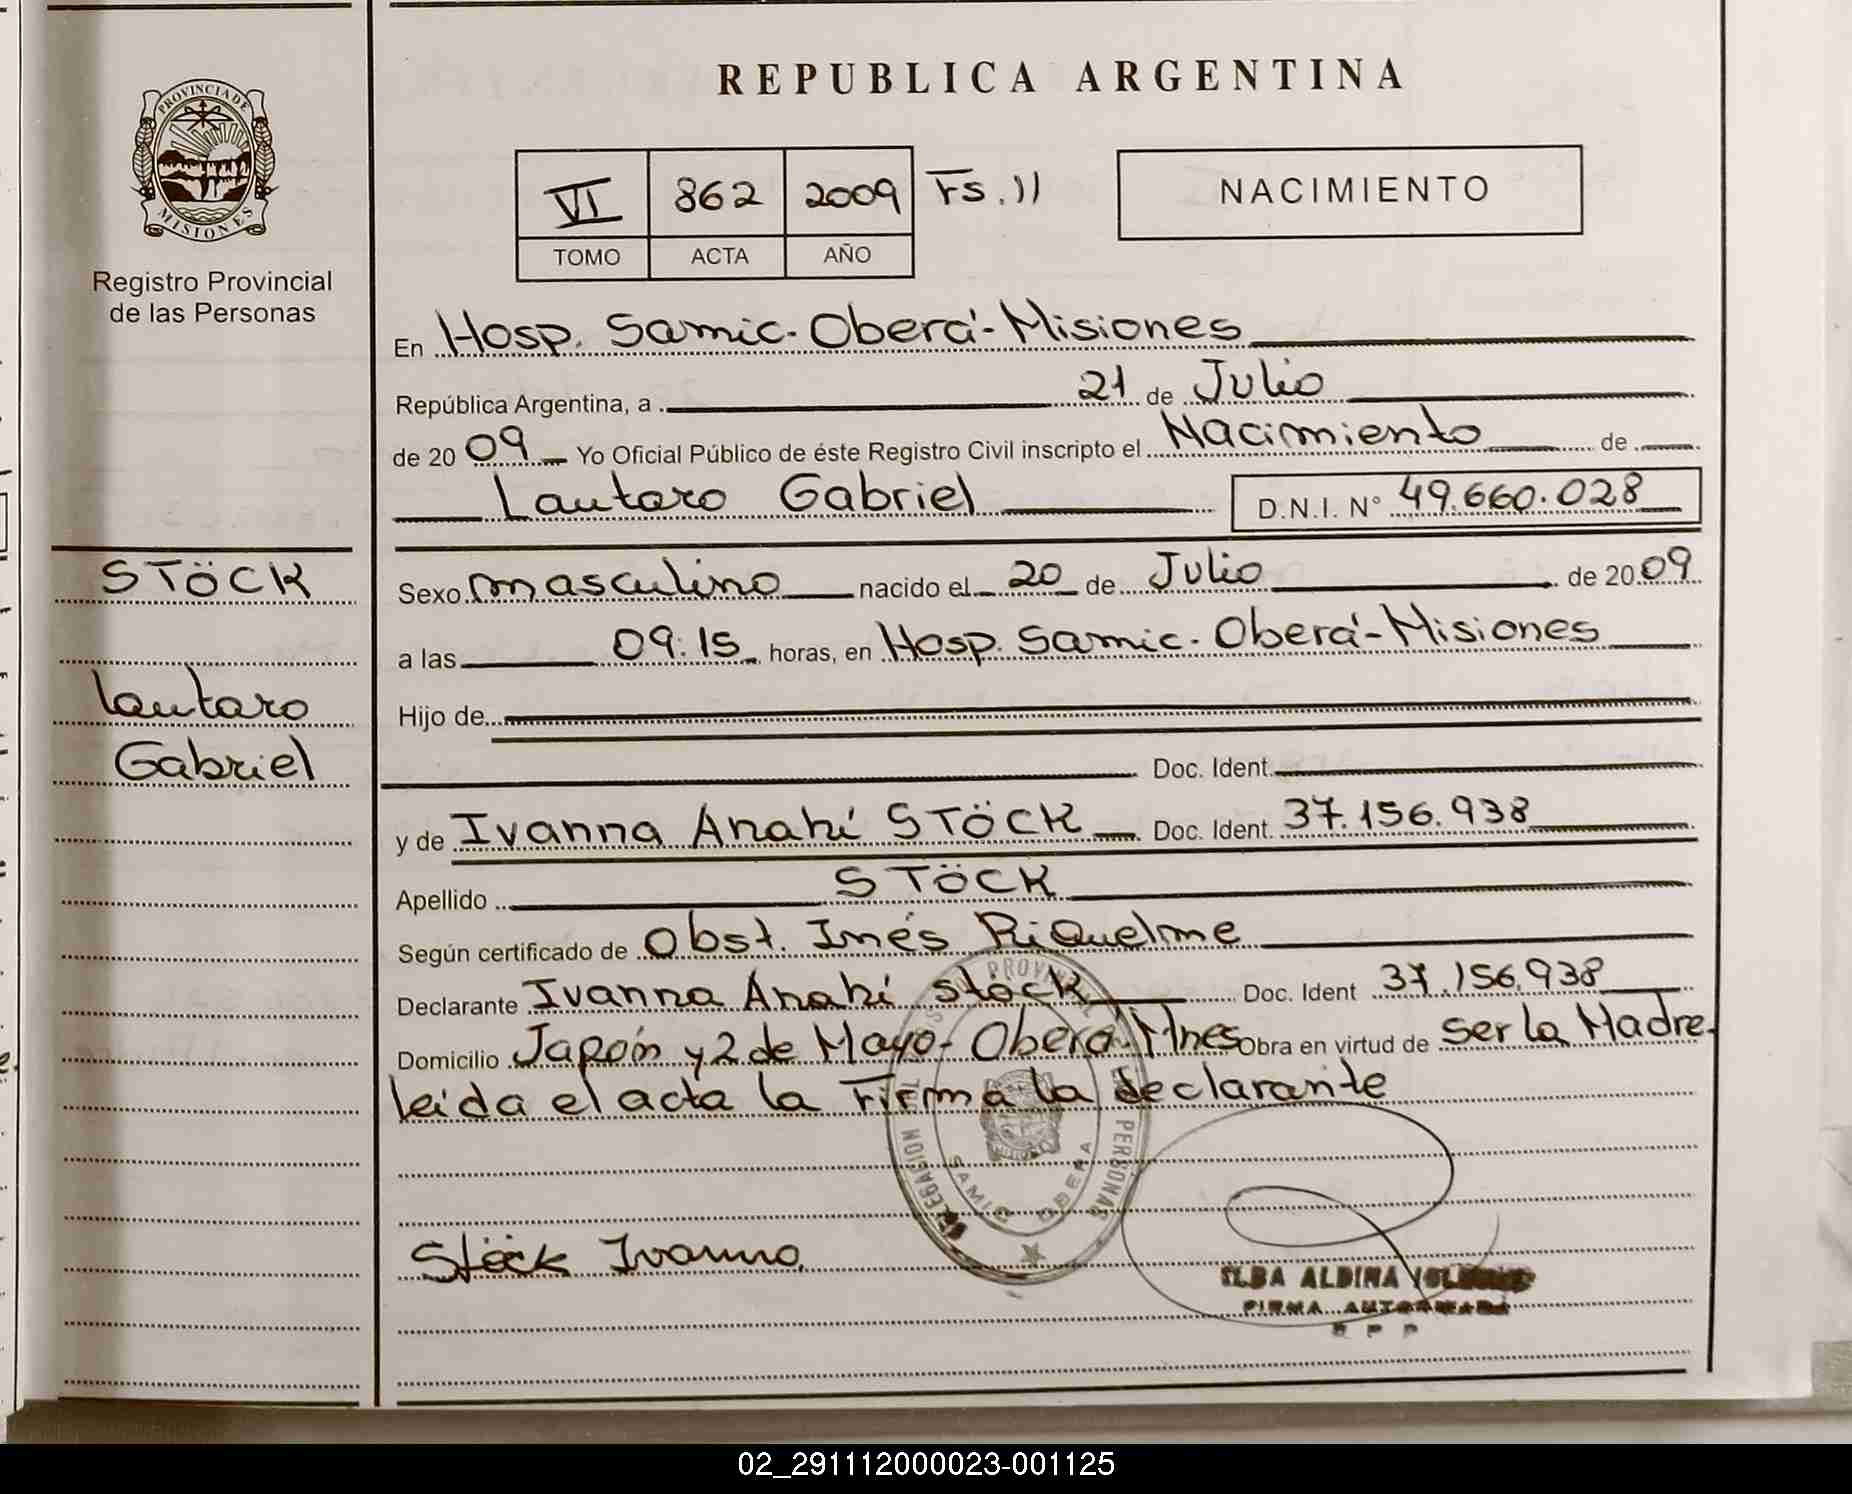 REPUBLICA ARGENTINA
PROVINCIA DE
MISIONES
Registro Provincial
de las Personas
VI 862 2009 Fs. 11
TOMO ACTA AÑO
NACIMIENTO
En Hosp. Samic - Oberá - Misiones
República Argentina, a 21 de Julio
de 2009 Yo Oficial Público de éste Registro Civil inscripto el Nacimiento de
Lautaro Gabriel D.N.I. N° 49.660.028
STÖCK
Lautaro
Gabriel
Sexo masculino nacido el 20 de Julio de 2009
a las 09:15 horas, en Hosp. Samic - Oberá - Misiones
Hijo de
Doc. Ident.
y de Ivanna Anahí STÖCK Doc. Ident. 37.156.938
Apellido STÖCK
Según certificado de Obst. Inés Riquelme
Declarante Ivanna Anahí Stöck Doc. Ident 37.156.938
Domicilio Japón y 2 de Mayo - Oberá - Mnes Obra en virtud de ser la Madre.
leída el acta la Firma la declarante
DELEGACION
PERSONAS
SAMIC OBERA
Stöck Ivanna.
ILBA ALDINA
FIRMA AUTORIZADA
R P P
02_291112000023-001125